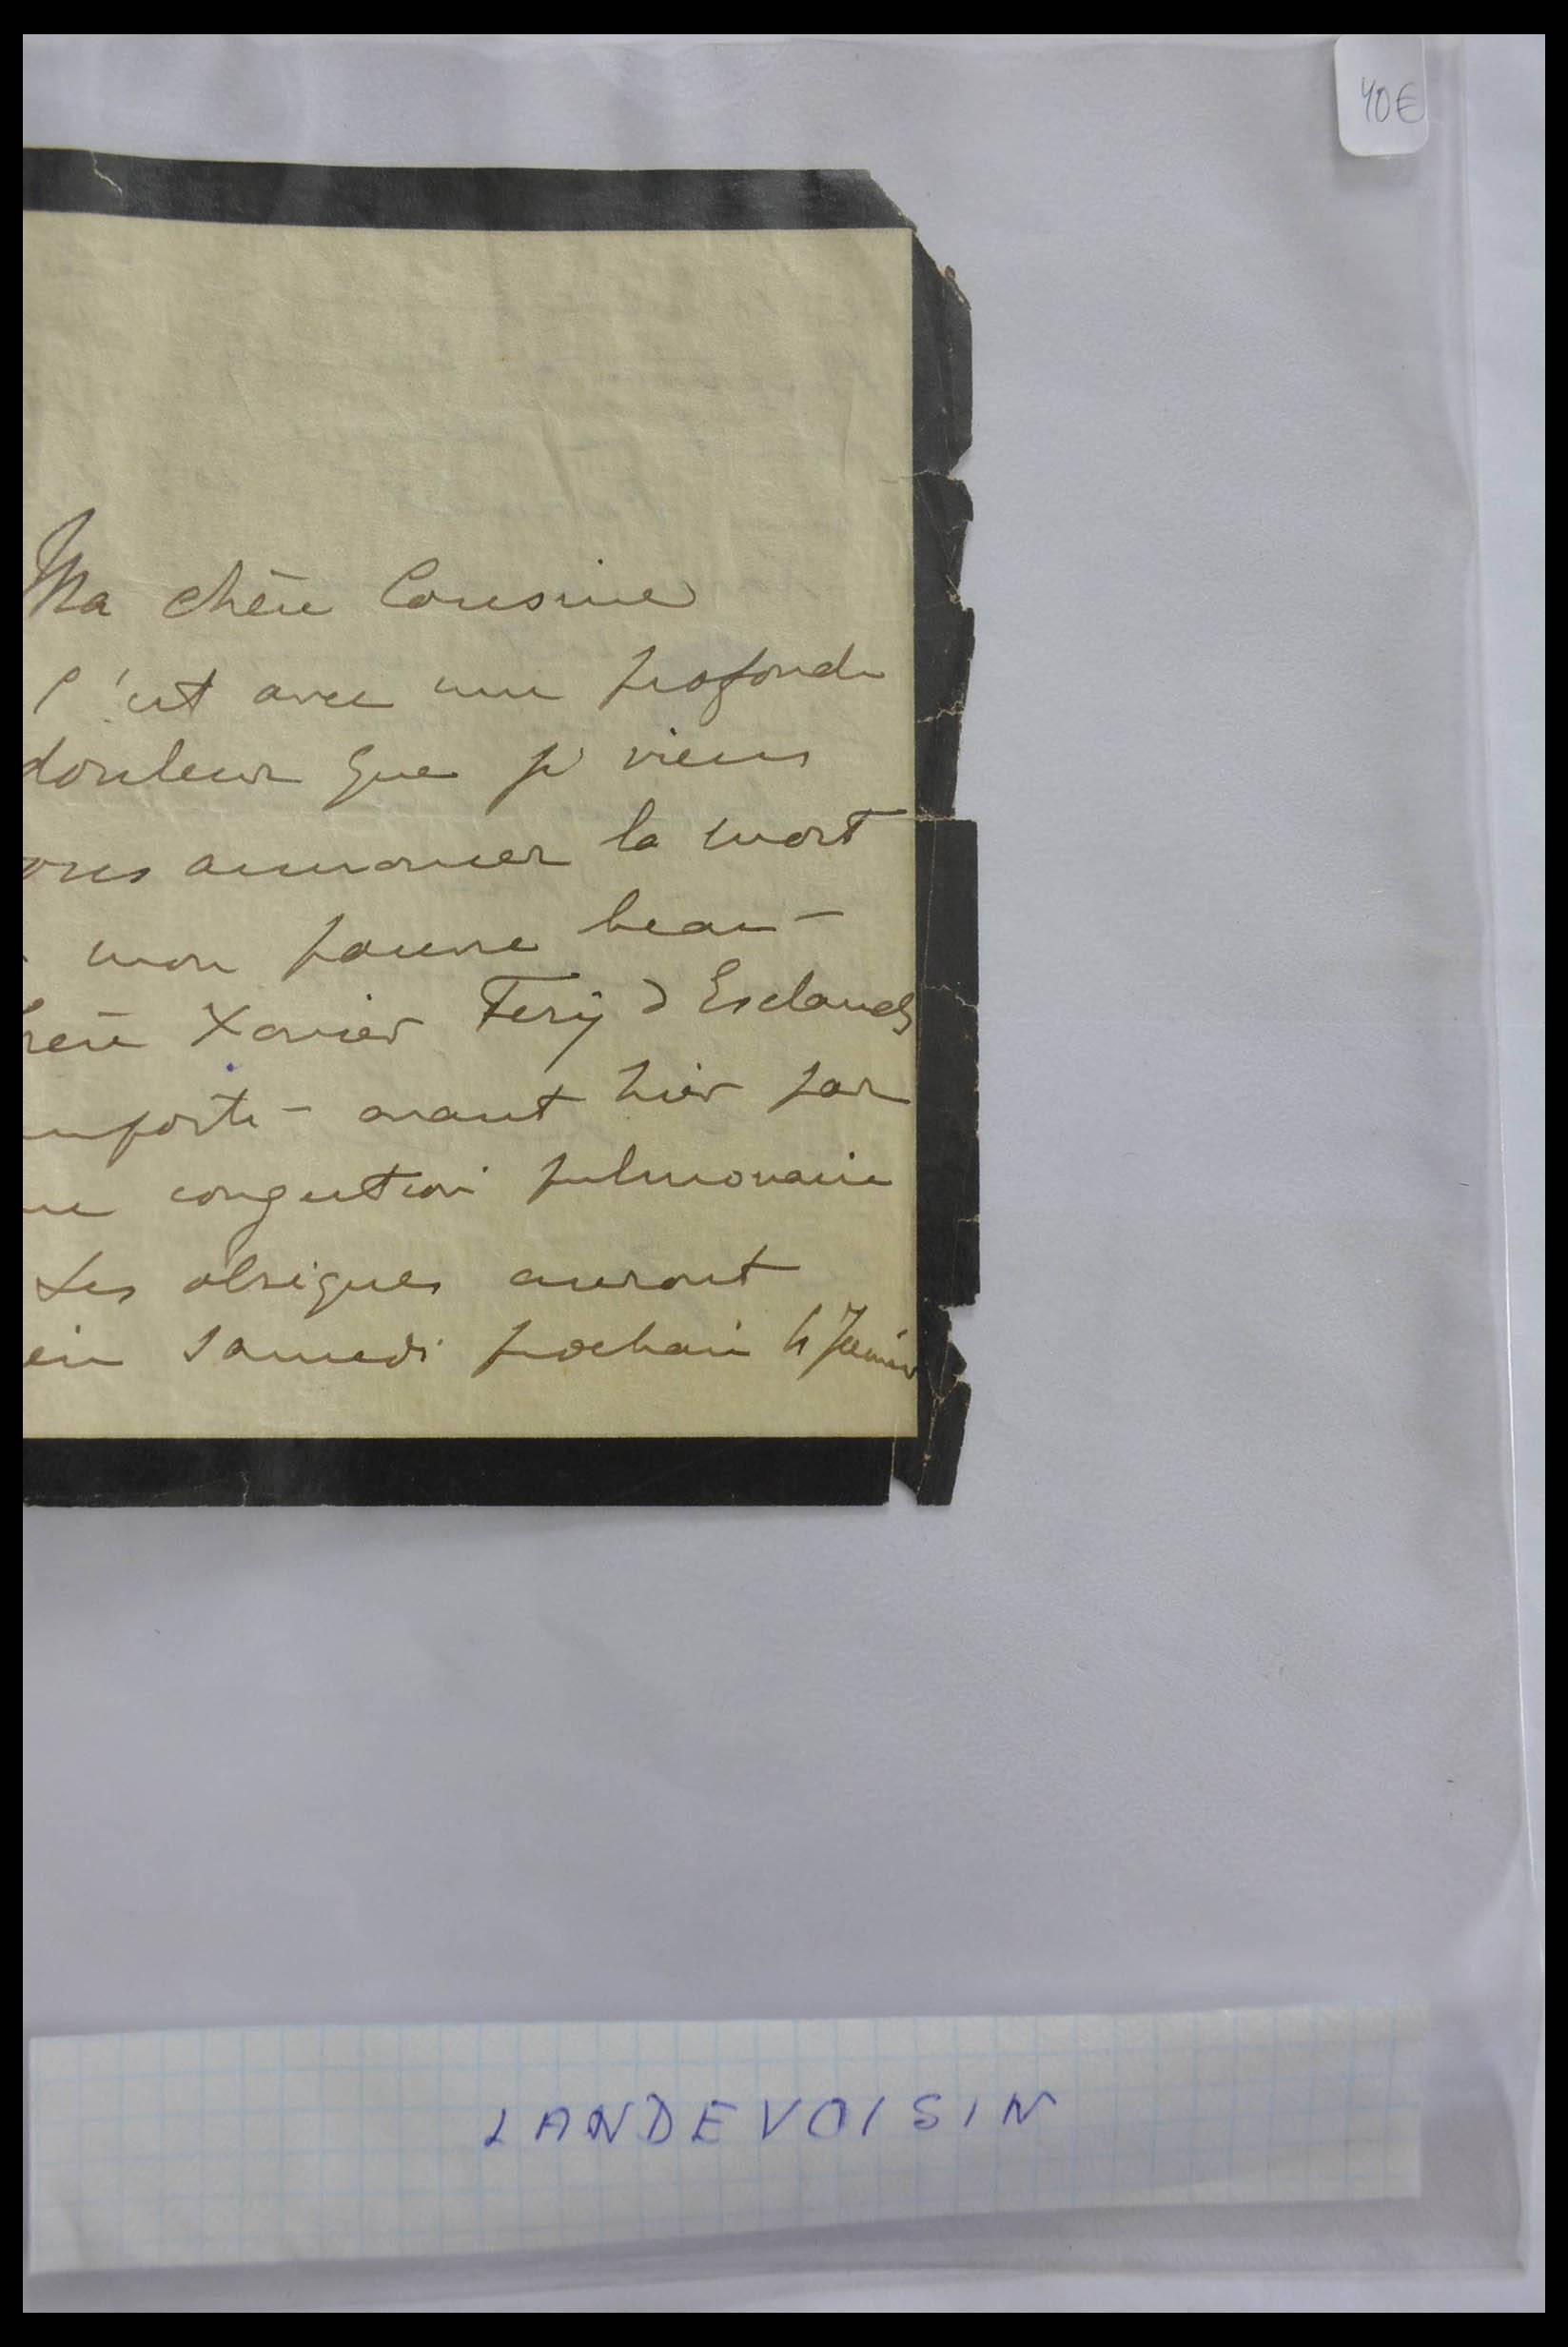 40€
Ma chère Cousine
C'est avec une profonde
douleur que je viens
ous annoncer la mort
mon pauvre beau-
rère Xavier Fery d'Esclands
mporté - avant hier par
ne congestion pulmonaire
Les obsèques auront
samedi prochain 4
LANDEVOISIN